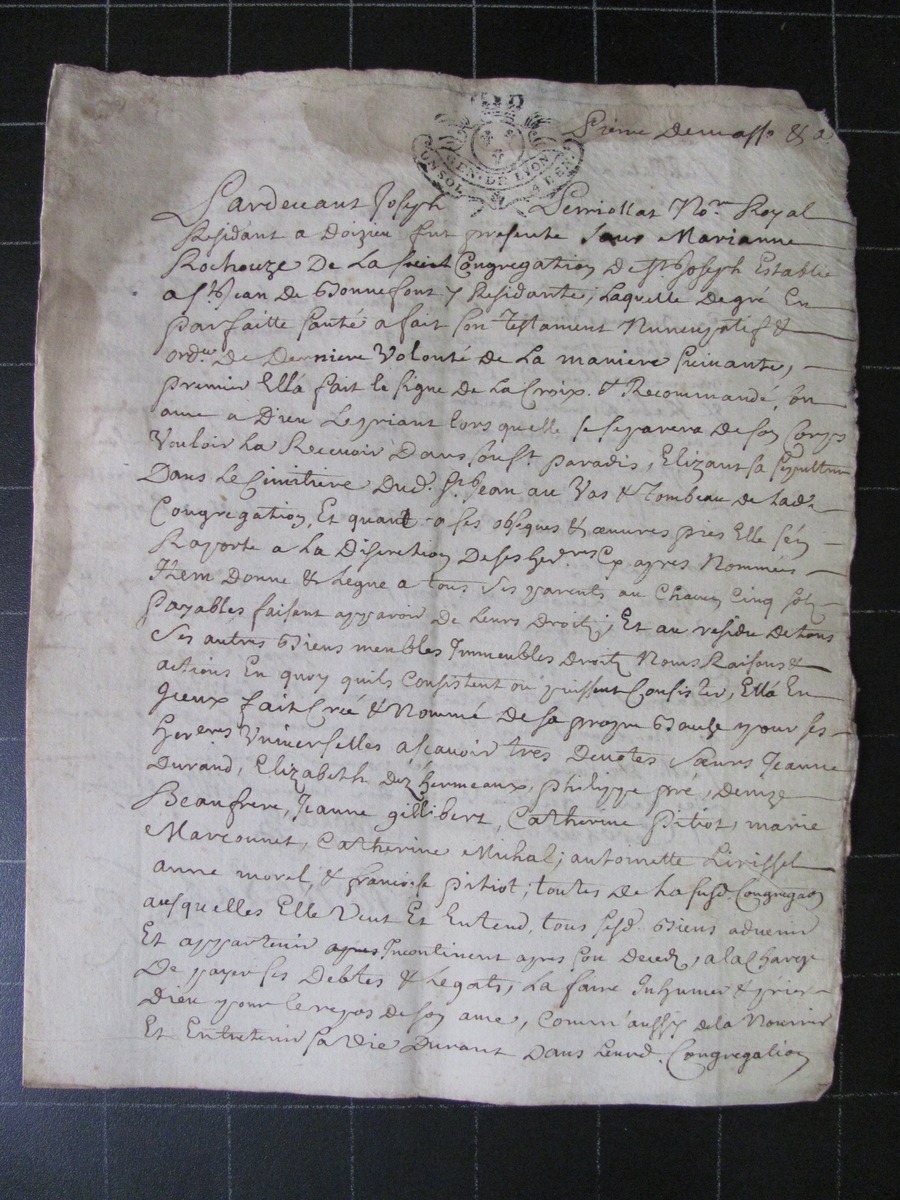 Pierre Demasso & a
GEN. DE LYON
UN SOL 4 DEN
Pardevant Joseph Perriollat No.re Royal
Residant a Doizieu fut presente Sœur Marianne
Rochouze De La Congregation De St Joseph Establie
a St Jean De Bonnefont y Residante, Laquelle De gré En
parfaitte santé a fait son Testament Nuncupatif &
ord.re De Derniere Volonté de La maniere suivante,
premier Ella fait le signe de La Croix & Recommandé son
ame a Dieu Le priant lors quelle se separera De son Corps
Vouloir La Recevoir Dans son St paradis, Elizant sa sepulture
Dans Le Cimitiere Dud. St Jean au Vas & Tombeau de Lad.e
Congregation, Et quant a ses obseques & œuvres pies Elle s'en
Raporte a La Discretion De ses her.eres Cy apres Nommées
Item Donne & Legue a tous ses parents au Chacun Cinq sols
Payables faisant apparoir De Leurs Droits, Et au residu De tous
ses autres Biens meubles Immeubles Droits Noms Raisons &
actions En quoy quils Consistent ou puissent Consister, Ella En
Jceux fait Créé & Nommé De sa propre Bouche pour ses
Her.eres Vniverselles ascavoir tres Devotes Sœurs Jeanne
Durand, Elizabeth Dez hermeaux, philippe pré, Denize
Beaufrere, Jeanne gillibert, Catherine Pitiot, marie
Marcounet, Catherine Michal, antoinette Livissel
anne morel, & francoise pitiot; toutes De La susd. Congregaon
ausquelles Elle Veut Et Entend, tous sesd. Biens advenir
Et appartenir apres Incontinent apres son Deced, a la Charge
De payer ses Debtes & Legats, La faire Inhumer & prier
Dieu pour le repos de son ame, Comm'aussy de la Nourrir
Et Entretenir sa Vie Durant Dans Leurd. Congregation